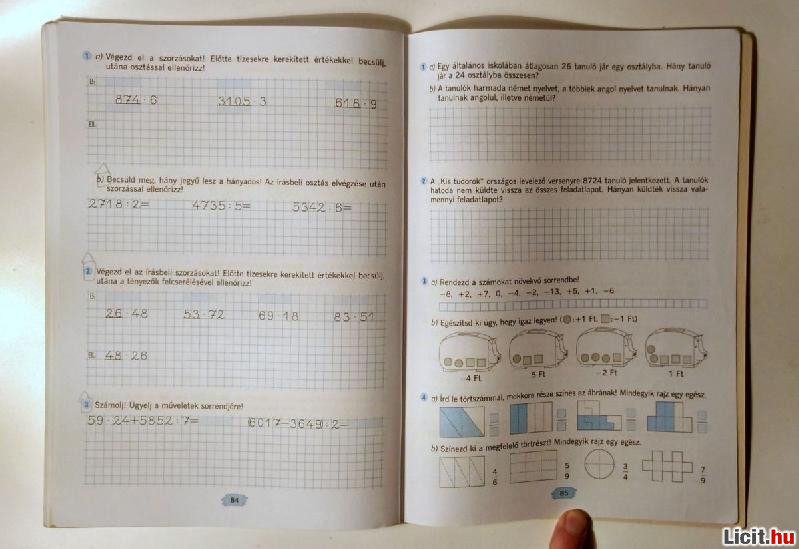 1 a) Végezd el a szorzásokat! Előtte tízesekre kerekített értékekkel becsülj,
utána osztással ellenőrizz!
B:
874 · 6 3105 · 3 618 · 9
Ell.
b) Becsüld meg, hány jegyű lesz a hányados! Az írásbeli osztás elvégzése után
szorzással ellenőrizz!
2718 : 2 = 4735 : 5 = 5342 : 6 =
2 Végezd el az írásbeli szorzásokat! Előtte tízesekre kerekített értékekkel becsülj,
utána a tényezők felcserélésével ellenőrizz!
B:
26 · 48 53 · 72 69 · 18 83 · 51
Ell. 48 · 26
3 Számolj! Ügyelj a műveletek sorrendjére!
59 · 24 + 5852 : 7 = 6017 – 3649 : 2 =
84
1 a) Egy általános iskolában átlagosan 26 tanuló jár egy osztályba. Hány tanuló
jár a 24 osztályba összesen?
b) A tanulók harmada német nyelvet, a többiek angol nyelvet tanulnak. Hányan
tanulnak angolul, illetve németül?
2 A „Kis tudorok” országos levelező versenyre 8724 tanuló jelentkezett. A tanulók
hatoda nem küldte vissza az összes feladatlapot. Hányan küldték vissza vala-
mennyi feladatlapot?
3 a) Rendezd a számokat növekvő sorrendbe!
–8, +2, +7, 0, –4, –2, –13, +5, +1, –6
b) Egészítsd ki úgy, hogy igaz legyen! ( : +1 Ft, : –1 Ft)
–4 Ft 5 Ft –2 Ft 1 Ft
4 a) Írd le törtszámmal, mekkora része színes az ábrának! Mindegyik rajz egy egész.
b) Színezd ki a megfelelő törtrészt! Mindegyik rajz egy egész.
4/6 5/9 3/4 7/9
85
Licit.hu